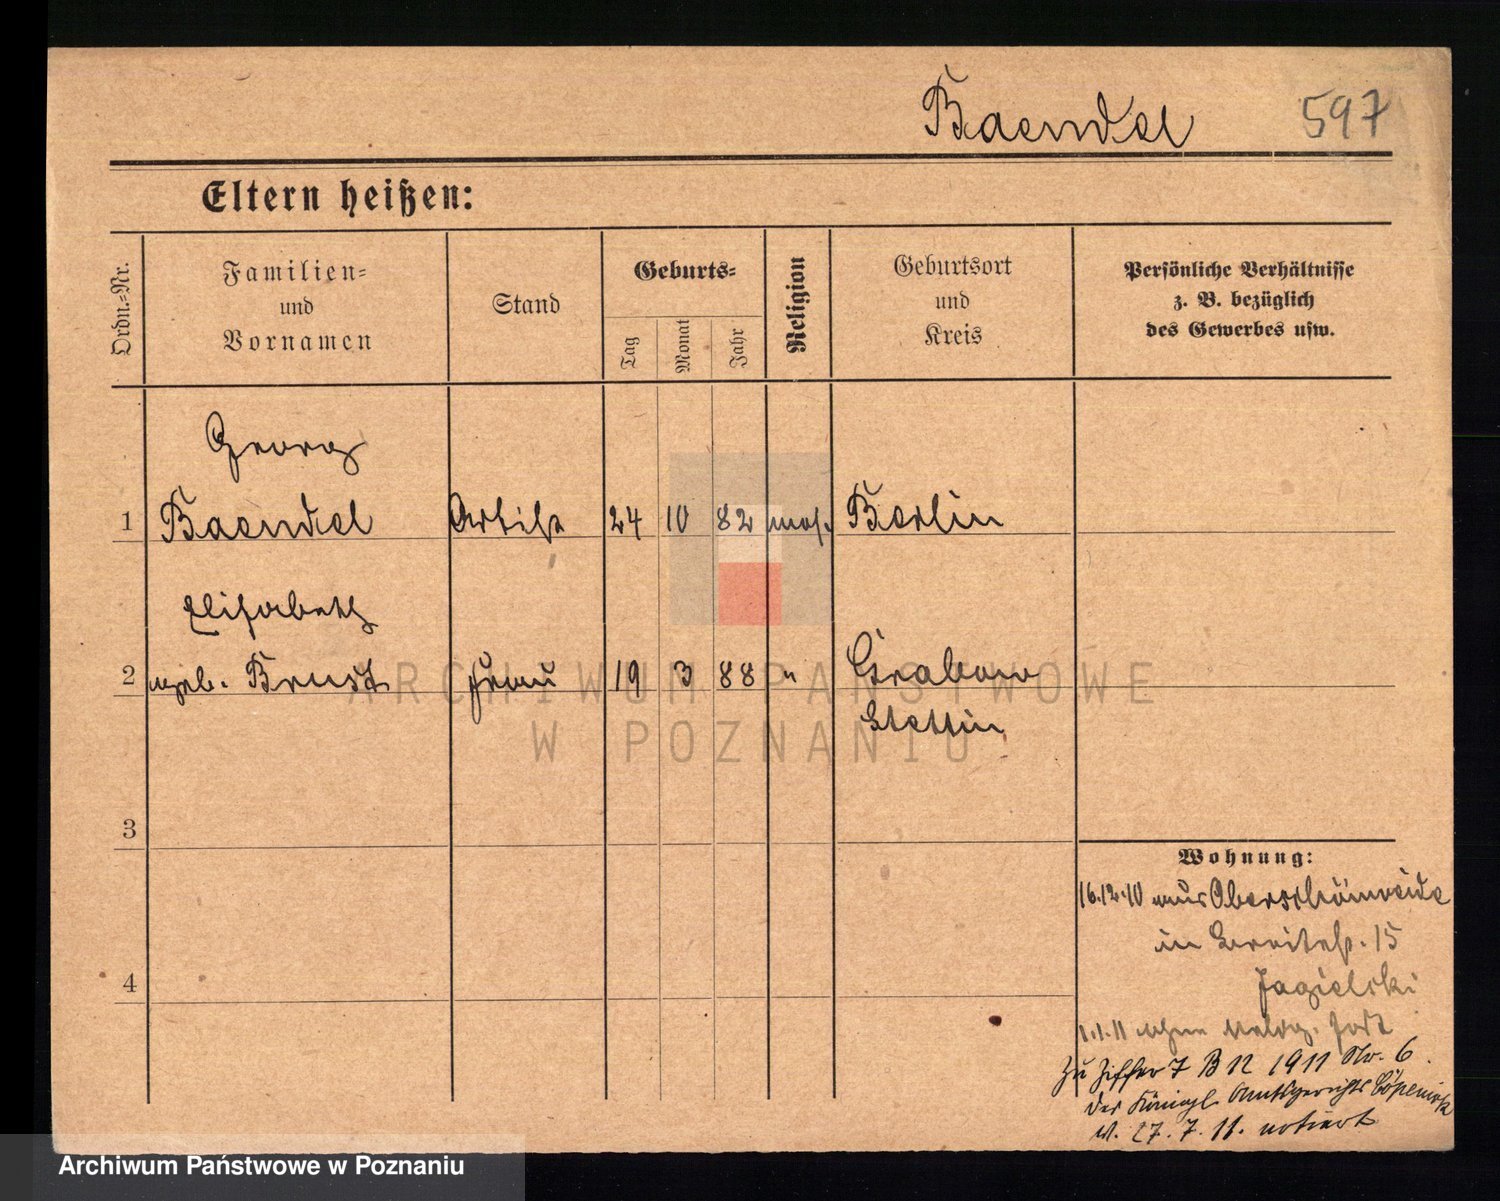 Baendel 597
Eltern heißen:
Ordn.-Nr.
Familien- und Vornamen
Stand
Geburts-
Tag
Monat
Jahr
Religion
Geburtsort und Kreis
Persönliche Verhältnisse
z. B. bezüglich
des Gewerbes usw.
Georg
1 Baendel Artist 24 10 82 mos. Berlin
Elisabeth
2 geb. Brust Frau 19 3 88 " Grabow
Stettin
3
4
Wohnung:
16.12.10 aus Oberschöneweide
in Breitestr. 15
Jagielski
1.1.11 ohne Meldg. fort
Zu Ziffer 7 B 12 1911 No. 6.
des Königl. Amtsgerichts Cöpenick
v. 27.7.11. notiert
ARCHIWUM PAŃSTWOWE
W POZNANIU
Archiwum Państwowe w Poznaniu